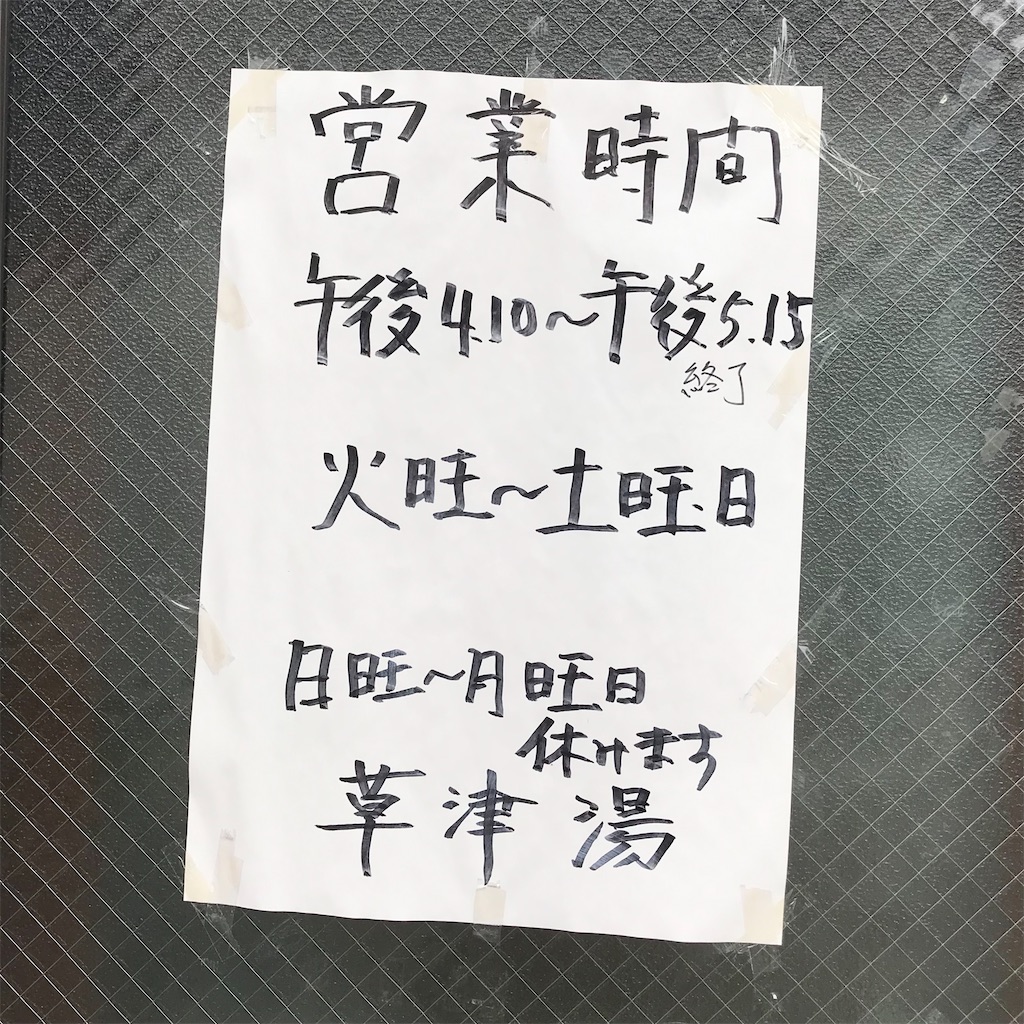 営業時間
午後4.10～午後5.15
終了
火旺～土旺日
日旺～月旺日
休けます
草津湯